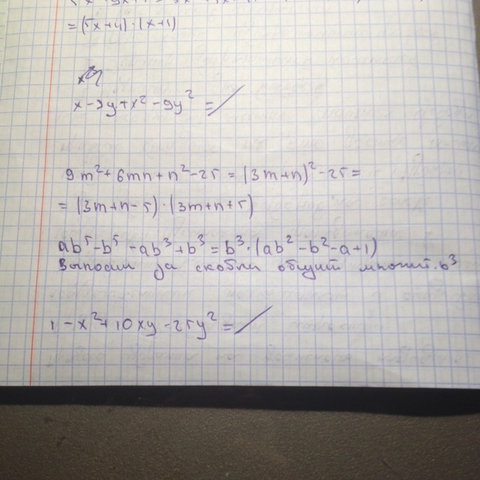 = (5x+4)·(x+1)
x-3y+x²-9y² =
9m²+6mn+n²-25 = (3m+n)²-25=
= (3m+n-5)·(3m+n+5)
ab⁵-b⁵-ab³+b³=b³·(ab²-b²-a+1)
Выносим за скобки общий множит. b³
1-x²+10xy-25y²=